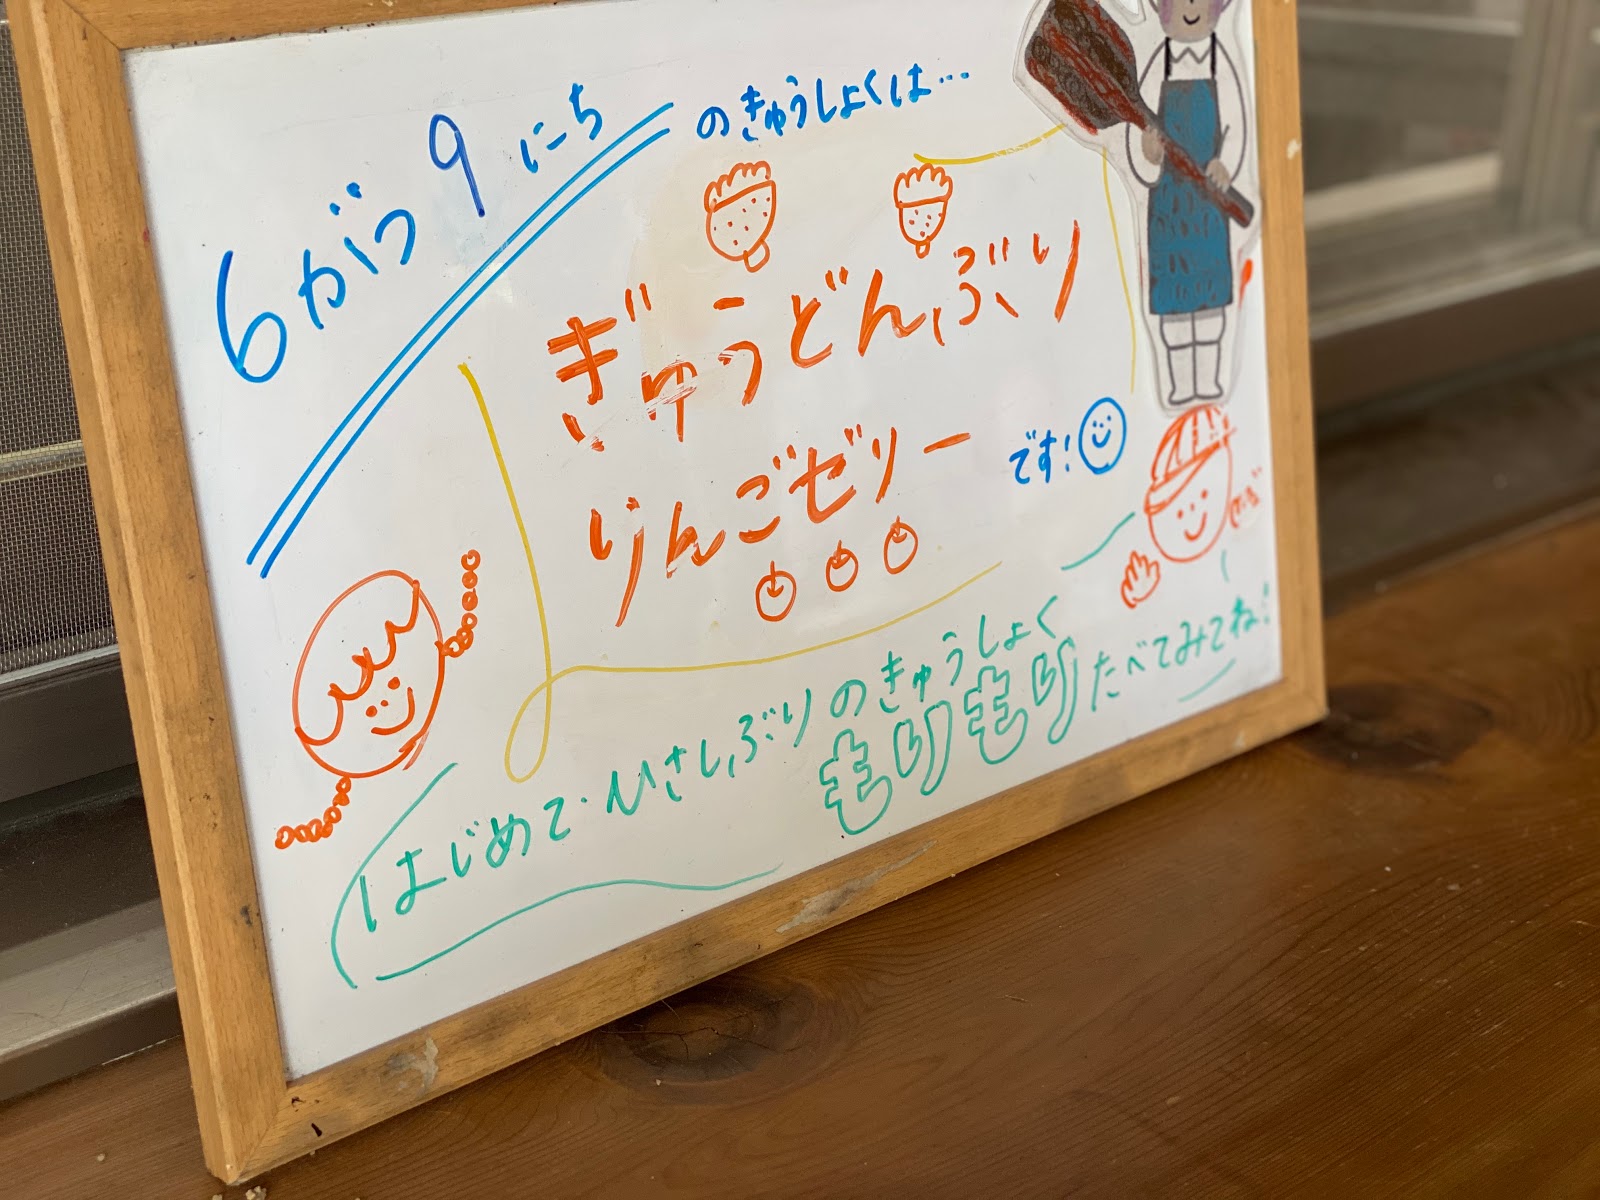 6がつ9にち
のきゅうしょくは…
ぎゅうどんぶり
りんごゼリー
です!
はじめて・ひさしぶりのきゅうしょく
もりもりたべてみてね!